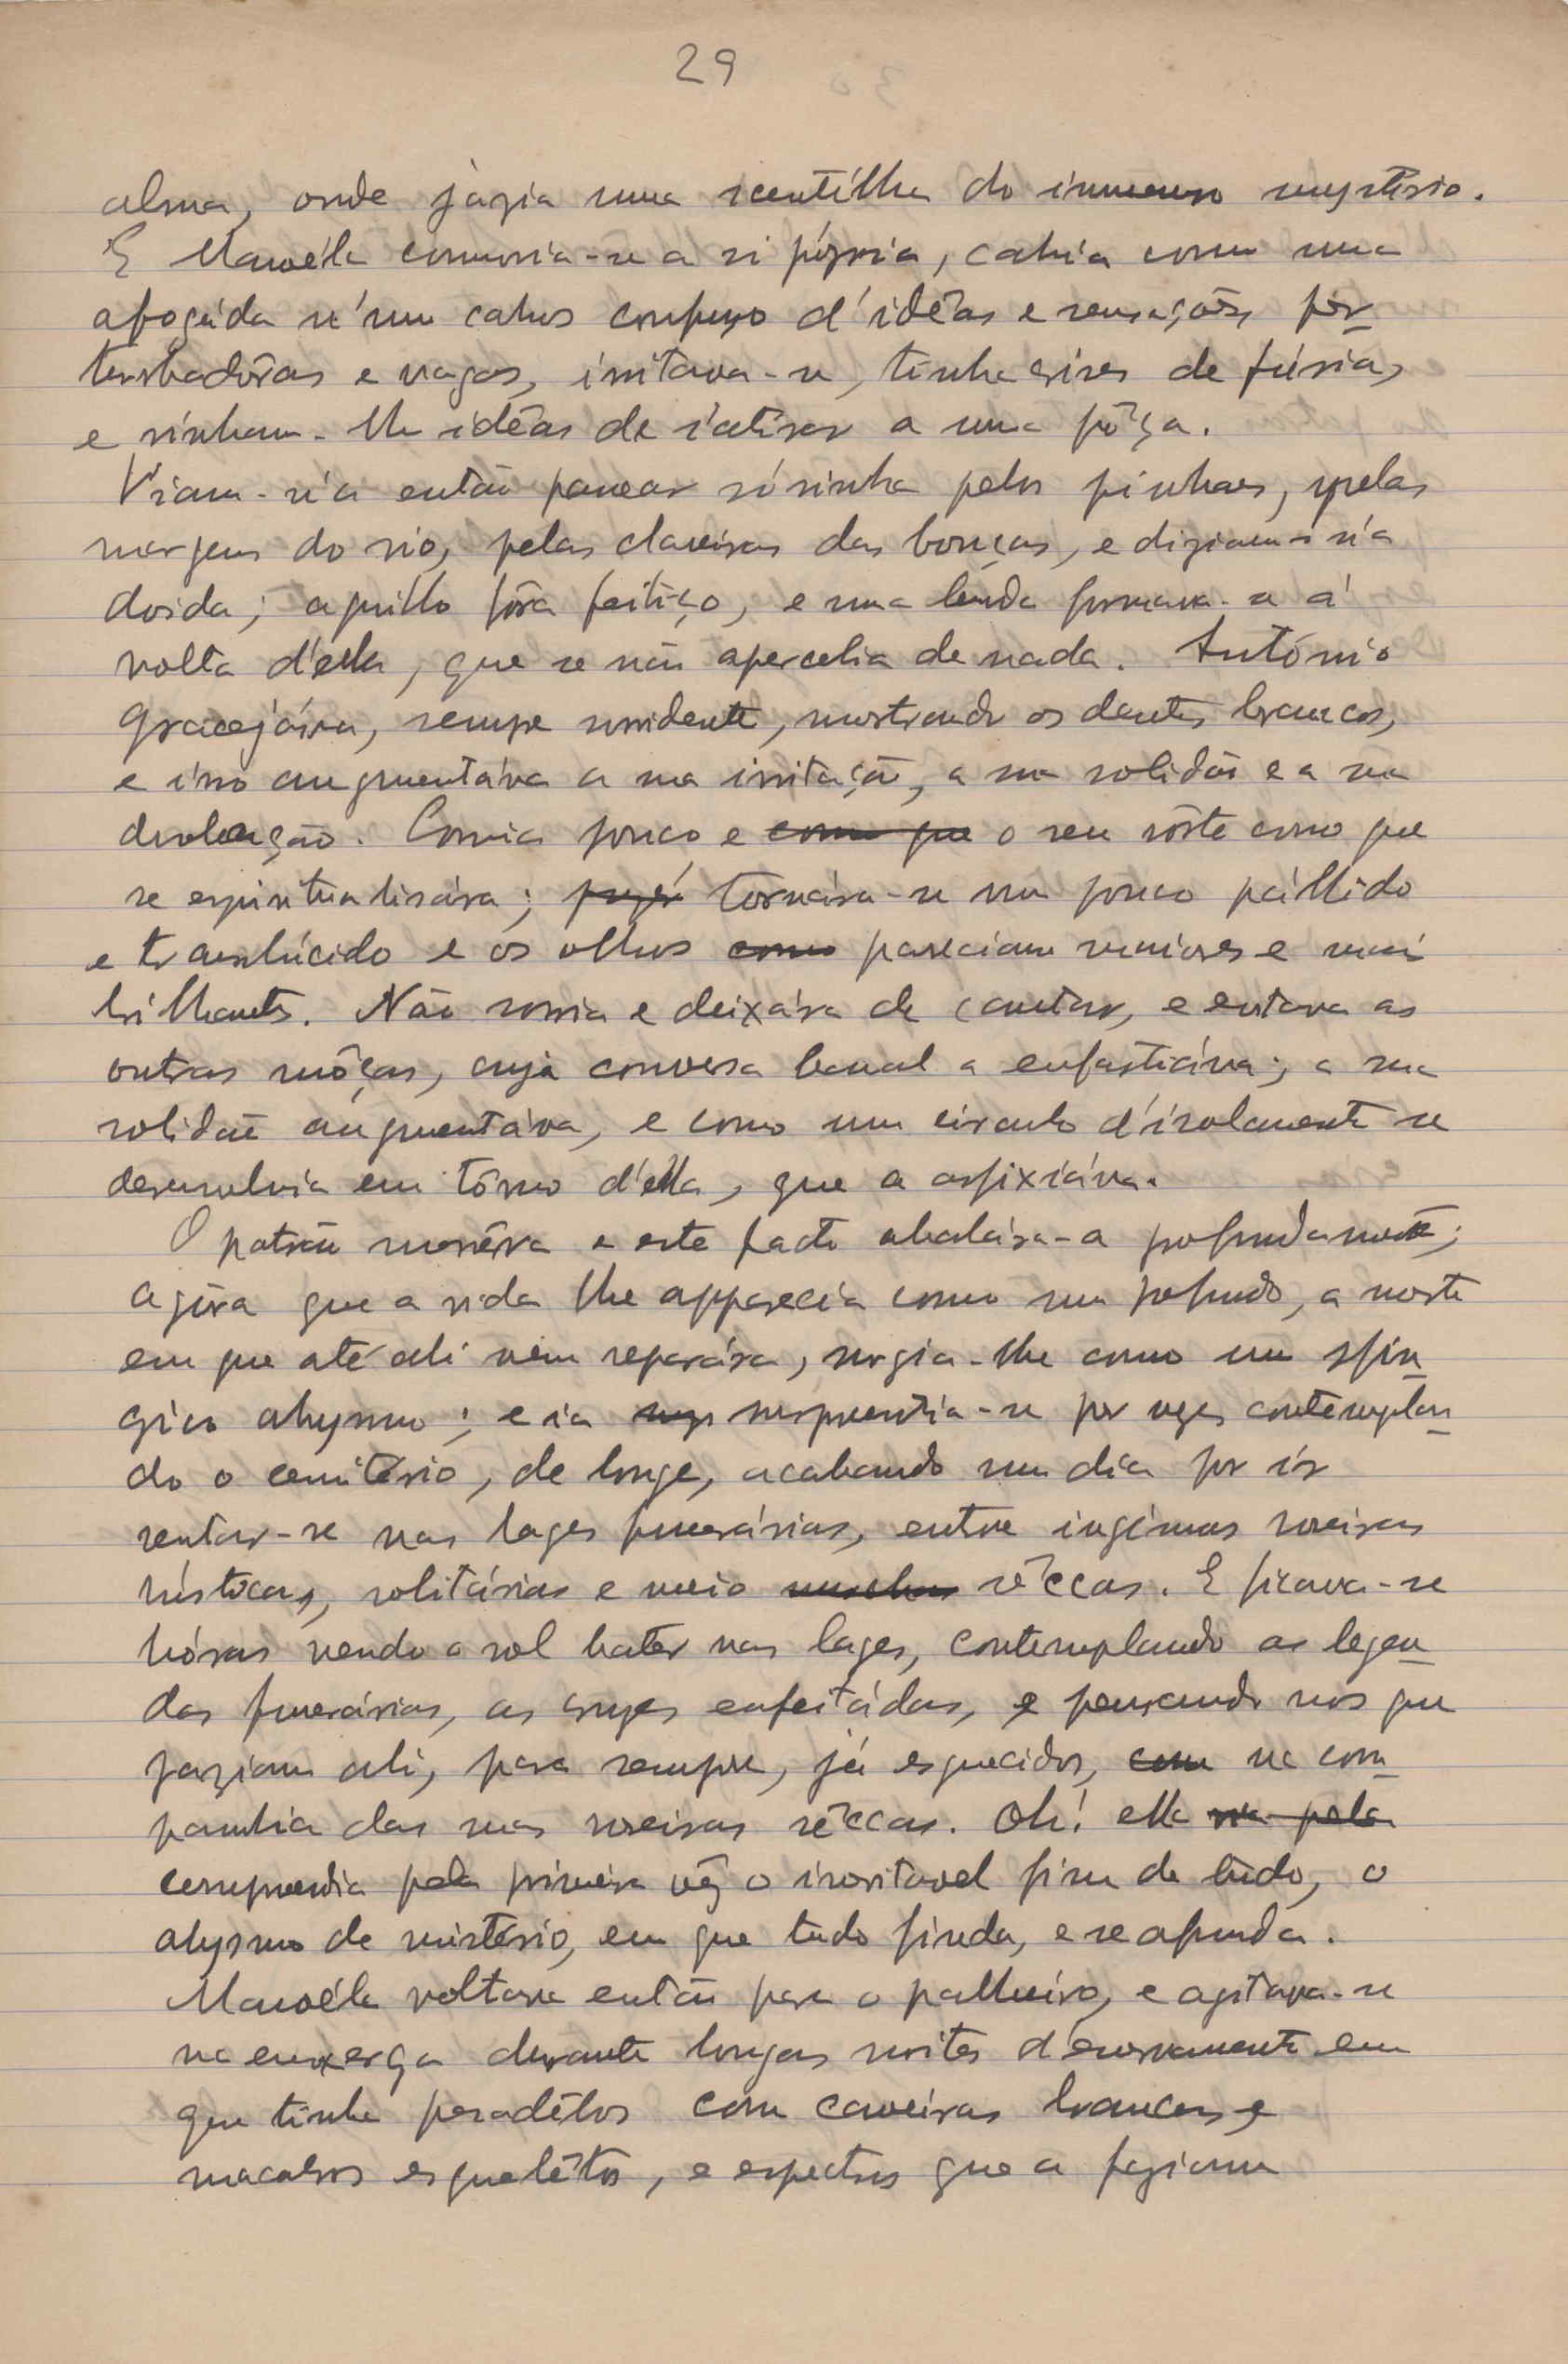 29
alma, onde jazia uma scentilha do immenso mystério.
E Manoéla consumia-se a si própria, cahia como uma
afogáda n'um cahos confuso d'idêas e sensações per-
turbadôras e vagas, irritava-se, tinha crises de fúria,
e vinham-lhe idêas de s'atirar a uma pôça.
Viam-n'a então passear sósinha pelos pinhaes, pelas
margens do rio, pelas clareiras das bouças, e diziam-n'a
doida; aquillo fôra feitiço, e uma lenda formava-se á
volta d'ella, que se não apercebia de nada. António
gracejára, sempre sorridente, mostrando os dentes brancos,
e isso augmentáva a sua irritação, a sua solidão e a sua
desolação. Comia pouco e como que o seu rôsto como que
se espiritualisára; tornára-se um pouco pállido
e translúcido e os olhos como pareciam maiores e mais
brilhantes. Não sorria e deixára de cantar, e evitava as
outras môças, cuja conversa banal a enfastiáva; a sua
solidão augmentáva, e como um circulo d'isolamento se
desenvolvia em tôrno d'ella, que a asfixiáva.
O patrão morrêra e este facto abalára-a profundamente;
agóra que a vida lhe apparecia como um profundo, a morte
em que até ali nem reparára, surgia-lhe como um sfin-
gico abysmo; e ia surprendia-se por vezes contemplan-
do o cemitério, de longe, acabando um dia por ír
sentar-se nas lages funerárias, entre ingénuas roseiras
rústicas, solitárias e meio murchas sêccas. E ficava-se
hóras vendo o sol bater nas lages, contemplando as legen-
das funerárias, as cruzes enfeitádas, e pensando nos que
jaziam ali, para sempre, já esquecidos, com na com-
panhia das suas roseiras sêccas. Oh! ella via pela
comprendia pela primeira vêz o inevitavel fim de tudo, o
abysmo de mistério, em que tudo finda, e se afunda.
Manoéla voltava então para o palheiro, e agitava-se
na enxerga durante longas noites d'enervamento em
que tinha pesadêlos com caveiras brancas e
macabros esquelêtos, e espectros que a faziam